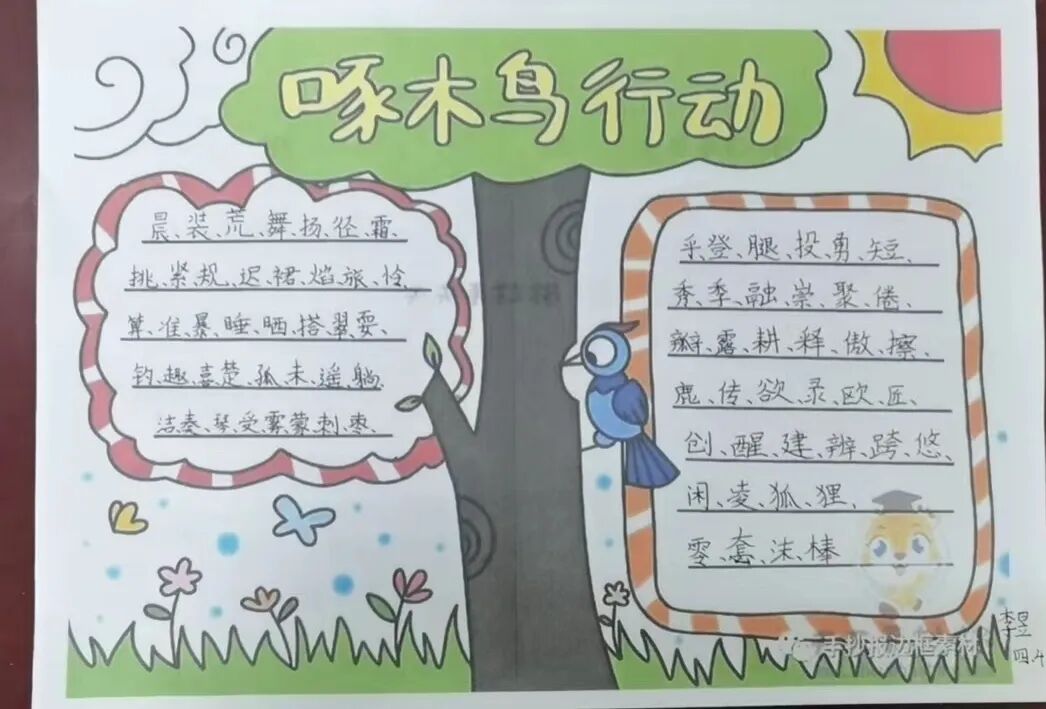 啄木鸟行动
晨、装、荒、舞、扬、径、霜、
挑、紧、规、迟、裙、焰、旅、怜、
算、准、暴、睡、晒、搭、翠、耍、
钓、趣、喜、楚、孤、未、遥、躺、
洁、奏、琴、受、雾、蒙、刺、枣、
乎、登、腿、投、勇、短、
秀、季、融、崇、聚、倦、
瓣、露、耕、释、傲、擦、
鹿、传、欲、录、欧、匠、
创、醒、建、辨、跨、悠、
闲、凌、狐、狸、
零、套、沫、棒
手抄报边框素材
李昱
四.